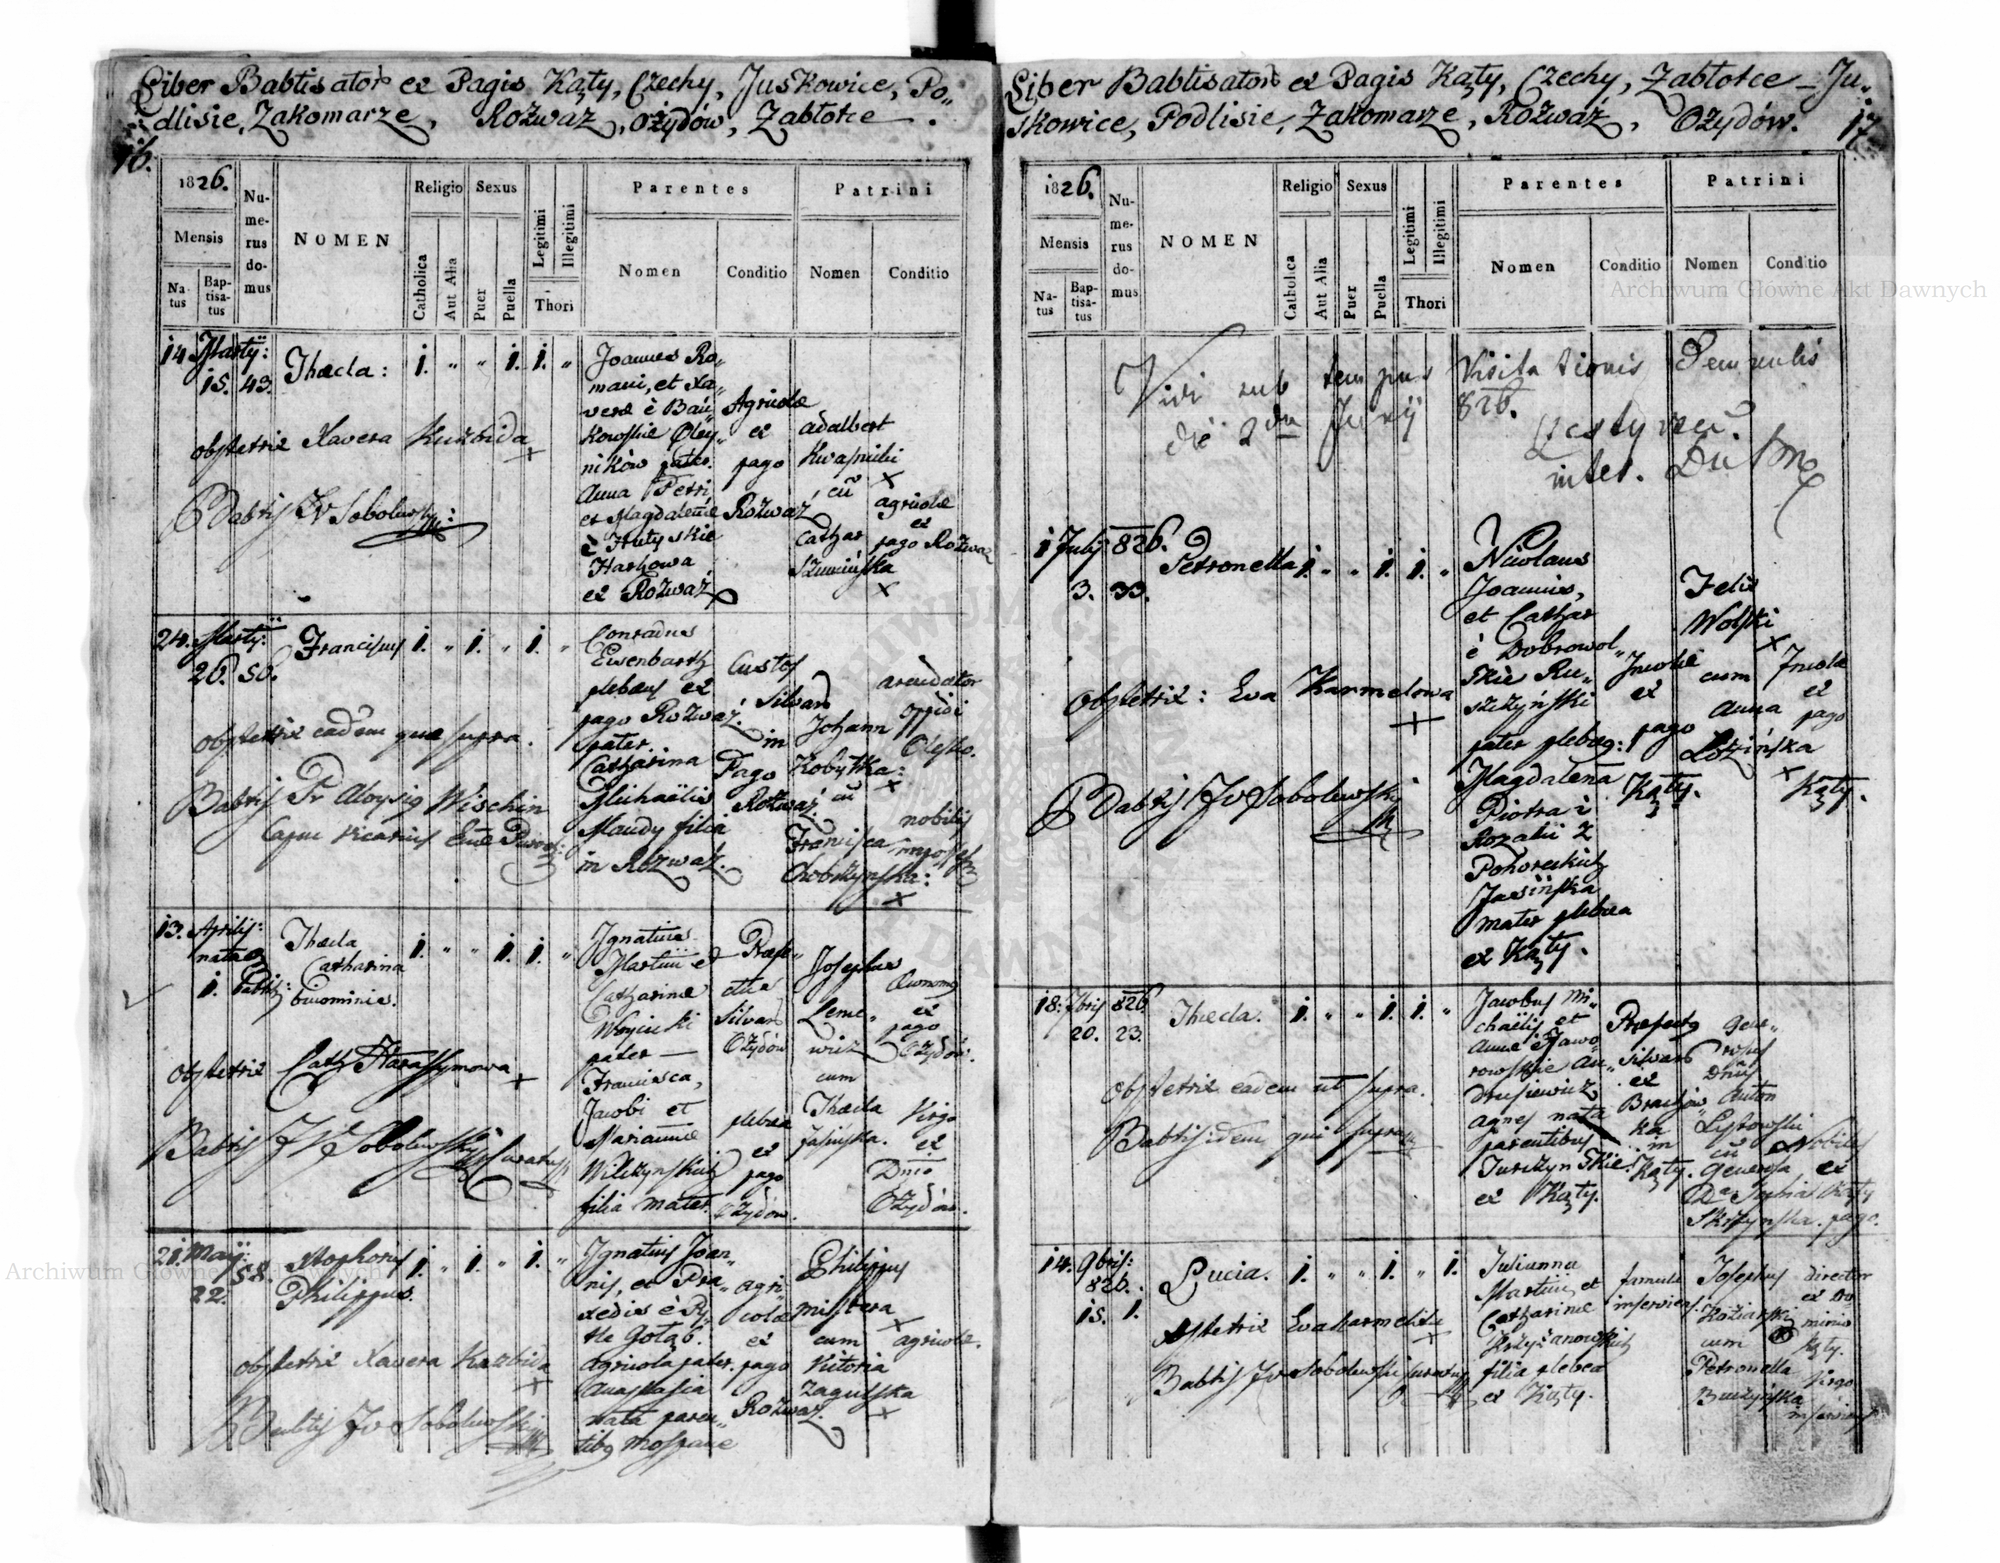 Liber Babtisator ex Pagis Kąty, Czechy, Juskowice, Po„
dlisie, Zakomarze, Rożważ, Ożydów, Zabłotce
16.
1826.
Mensis
Na-
tus
Bap-
tisa-
tus
Nu-
me-
rus
do-
mus
NOMEN
Religio
Catholica
Aut Alia
Sexus
Puer
Puella
Legitimi
Illegitimi
Thori
Parentes
Nomen
Conditio
Patrini
Nomen
Conditio
14 Martij:
15. 43.
Thecla:
1. „ „ 1. 1. „
Joannes Ro„
mani, et Xa„
kowskie Oley„
ników pater.
Anna Petri
et Magdalenæ
è Hutyskie
Harhowa
ex Rożważ
Agricolæ
ex
pago
Rożważ
Adalbert
cũ
Cathar
Szumińska
x
agricolæ
ex
pago Rożważ
obstetrix Xavera Kuzbida
+
Babtis Jv Sobolewski
24. Martij:
26. 50.
Franciscus
1. „ 1. „ 1. „
Conradus
Eisenbarth
plebeus ex
pago Rożważ.
pater.
Catharina
Michaëlis
Maudy filia
in Rożważ.
Custos
Silvar
in
Pago
Rożważ.
Johann
Kobyłka:
x
cũ
Francisca
arendator
oppidi
Olesko.
nobilis
x
obstetrix eadem quæ supra.
Babtis Fr Aloysig Wischin
13. Aprilis:
nata
1. babtis:
Thecla
Catharina
binominis.
1. „ „ 1. 1. „
Ignatius
Martini et
Catharinæ
Woyciński
pater —
Francisca,
Jacobi et
Mariannæ
Wilczynskich
filia mater.
Præfe„
ctus
Silvar
Ożydów
plebea
ex
pago
Ożydów.
Josephus
Leme„
wicz
cum
Thecla
Jasińska.
Œconomg
ex
pago
Ożydów.
Virgo
ex
Dnio
Ożydów.
obstetrix Cath Harassymowa
+
Babtis Jv Sobolewski Curatus
21. Maij:
22. 58.
Philippus.
1. „ 1. „ 1. „
Ignatius Joan„
nis, et Pra„
xedis è Ry„
Gołąb.
agricola pater.
Anastasia
nata paren„
tibg Mospane
agri„
colæ
ex
pago
Rożważ.
Philippus
Mistera
x
cum
Victoria
Zagulska
x
agricolæ.
obstetrix Xavera Kuzbida
x
Babtis Jv Sobolewski
Liber Babtisator ex Pagis Kąty, Czechy, Zabłotce – Ju„
skowice, Podlisie, Zakomarze, Rożważ, Ożydów.
17.
1826.
Mensis
Na-
tus
Bap-
tisa-
tus
Nu-
me-
rus
do-
mus
NOMEN
Religio
Catholica
Aut Alia
Sexus
Puer
Puella
Legitimi
Illegitimi
Thori
Parentes
Nomen
Conditio
Patrini
Nomen
Conditio
Vidi sub tempus Visitationis
die 2da Junij 826.
1 Julij 826.
3. 33.
Petronella
1. „ „ 1. 1. „
Nicolaus
Joannis,
et Cathar
è Dobrowol„
skie Ru„
szczyński
pater plebeg:
Magdalena
Piotra i
Rozalii z
Pohoreckich
Jasińska
mater plebea
ex Kąty.
Incolæ
ex
pago
Kąty.
Felix
Wolski
x
cum
Anna
Lozińska
x
Incolæ
ex
pago
Kąty.
Obstetrix: Eva Karmelowa
+
Babtis Jv Sobolewski
18. 7bris 826.
20. 23.
Thecla.
1. „ „ 1. 1. „
Jacobus Mi„
chaëlis et
Annæ è Jawo„
rowskie An„
drusiewicz
Agnes nata
parentibus
Jurczynskie.
ex Kąty.
Præfectg
silvar
ex
in
Kąty.
Gene„
rosus
Dnũs
Anton
cũ
Generosa
Skrzynska.
Nobiles
ex
Kąty
pago.
Obstetrix eadem ut supra.
Babtis idem qui supra
14. 9bris:
826.
15. 1.
Lucia.
1. „ „ 1. „ 1.
Julianna
Martini, et
Catharinæ
Krzyżanowskich
filia plebea
ex Kąty.
famula
inserviens.
Josephus
Koziarski
cum
Petronella
Buczyńska
director
ex Do
minio
Kąty.
Virgo
inserviens
Obstetrix Eva Karmelita
+
Babtis Jv Sobolewski Curatus
Archiwum Główne Akt Dawnych
Archiwum Główne Akt Dawnych